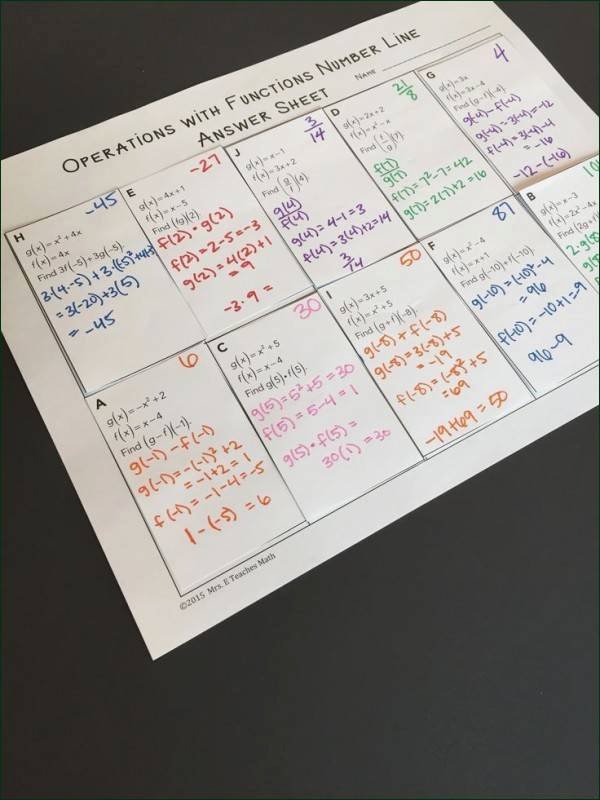 OPERATIONS WITH FUNCTIONS NUMBER LINE
ANSWER SHEET
NAME
H
-45
g(x) = x² + 4x
f(x) = 4x
Find 3f(-5) + 3g(-5).
= 3(-20) + 3(5)
= -45
E
-27
g(x) = 4x+1
f(x) = x-5
Find (fg)(2).
f(2) · g(2)
f(2) = 2-5 = -3
g(2) = 4(2)+1
= 9
-3·9 =
J
3/14
g(x) = x-1
f(x) = 3x+2
Find (g/f)(4).
g(4)
f(4)
g(4) = 4-1 = 3
f(4) = 3(4)+2 = 14
D
21/8
g(x) = 2x + 2
f(x) = x² - x
Find (f/g)(7).
f(7)
g(7)
f(7) = 7²-7 = 42
g(7) = 2(7)+2 = 16
G
4
g(x) = 3x
f(x) = 3x-4
Find (g-f)(-4).
g(-4) - f(-4)
= -16
-12-(-16)
A
6
g(x) = -x² + 2
f(x) = x-4
Find (g-f)(-1).
g(-1) - f(-1)
g(-1) = -(-1)²+2
= -1+2 = 1
f(-1) = -1-4 = -5
1-(-5) = 6
C
30
g(x) = x² + 5
f(x) = x-4
Find g(5)·f(5).
g(5) = 5²+5 = 30
f(5) = 5-4 = 1
g(5)·f(5) =
30(1) = 30
I
50
g(x) = 3x + 5
f(x) = x² + 5
Find (g+f)(-8).
g(-8) + f(-8)
g(-8) = 3(-8)+5
= -19
f(-8) = (-8)²+5
= 69
-19+69 = 50
F
87
g(x) = x² - 4
f(x) = x+1
Find g(-10)+f(-10).
= 96
96-9
B
g(x) = x-3
©2015 Mrs. E Teaches Math